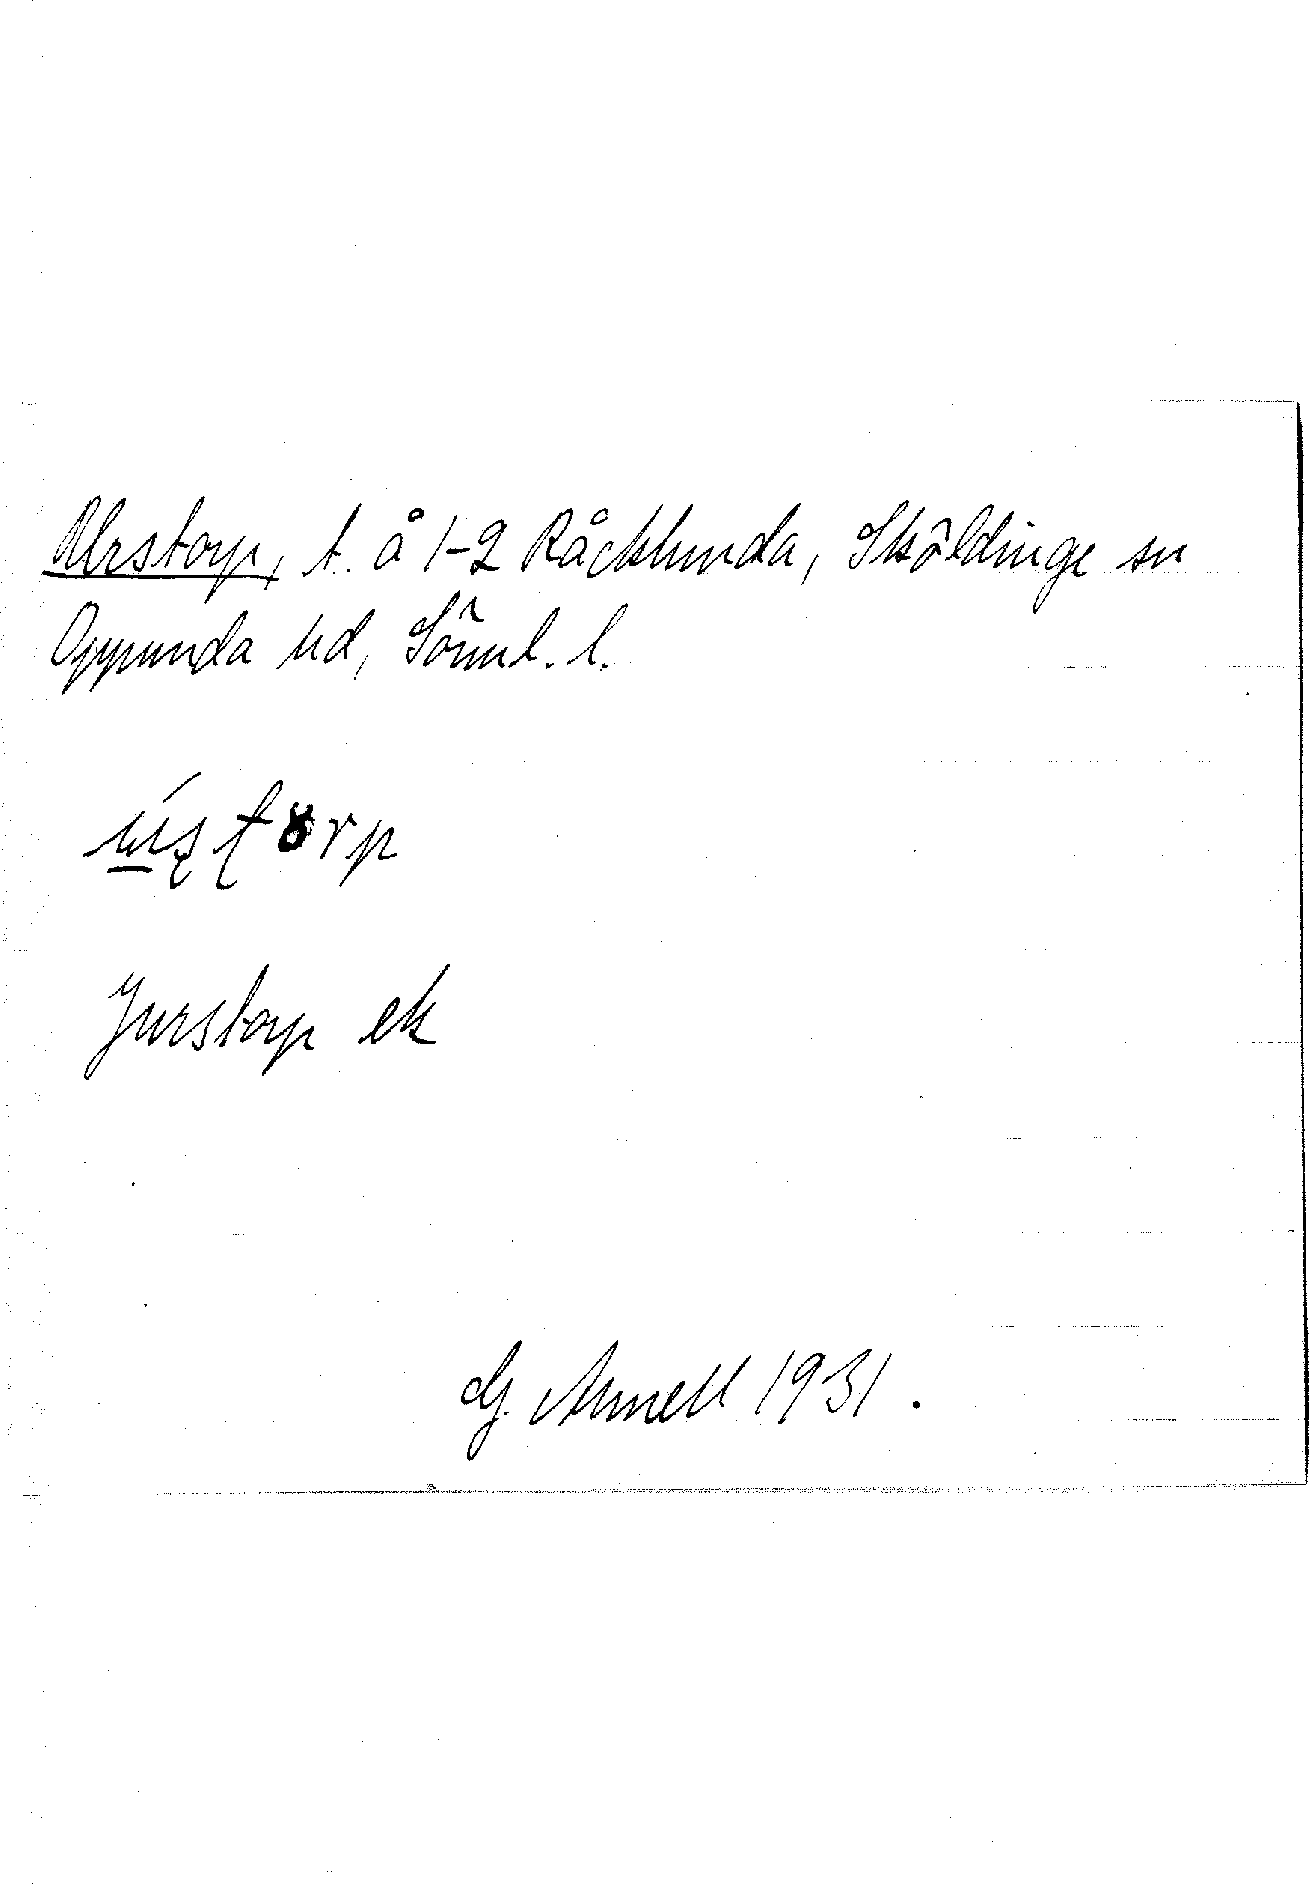 Urstorp, t. å 1-2 Råcklunda, Sköldinge sn
Oppunda hd, Sörml. l.
Jurstorp ek
G. Arnell 1931.